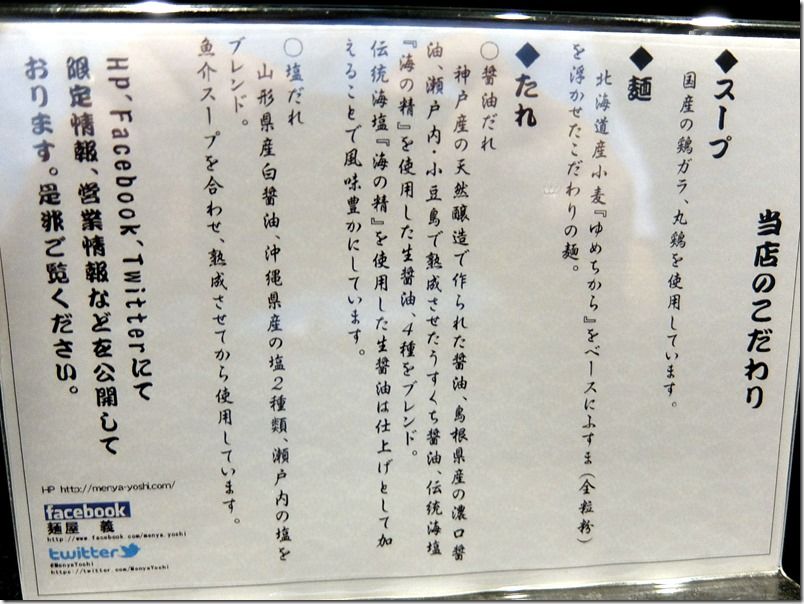 当店のこだわり
◆スープ
国産の鶏ガラ、丸鶏を使用しています。
◆麺
北海道産小麦『ゆめちから』をベースにふすま(全粒粉)
を浮かせたこだわりの麺。
◆たれ
○醤油だれ
神戸産の天然醸造で作られた醤油、島根県産の濃口醤
油、瀬戸内・小豆島で熟成させたうすくち醤油、伝統海塩
『海の精』を使用した生醤油、4種をブレンド。
伝統海塩『海の精』を使用した生醤油は仕上げとして加
えることで風味豊かにしています。
○塩だれ
山形県産白醤油、沖縄県産の塩2種類、瀬戸内の塩を
ブレンド。
魚介スープを合わせ、熟成させてから使用しています。
Hp、Facebook、Twitterにて
限定情報、営業情報などを公開して
おります。是非ご覧ください。
HP http://menya-yoshi.com/
facebook
麺屋 義
http://www.facebook.com/menya.yoshi
twitter
@MenyaYoshi
https://twitter.com/MenyaYoshi